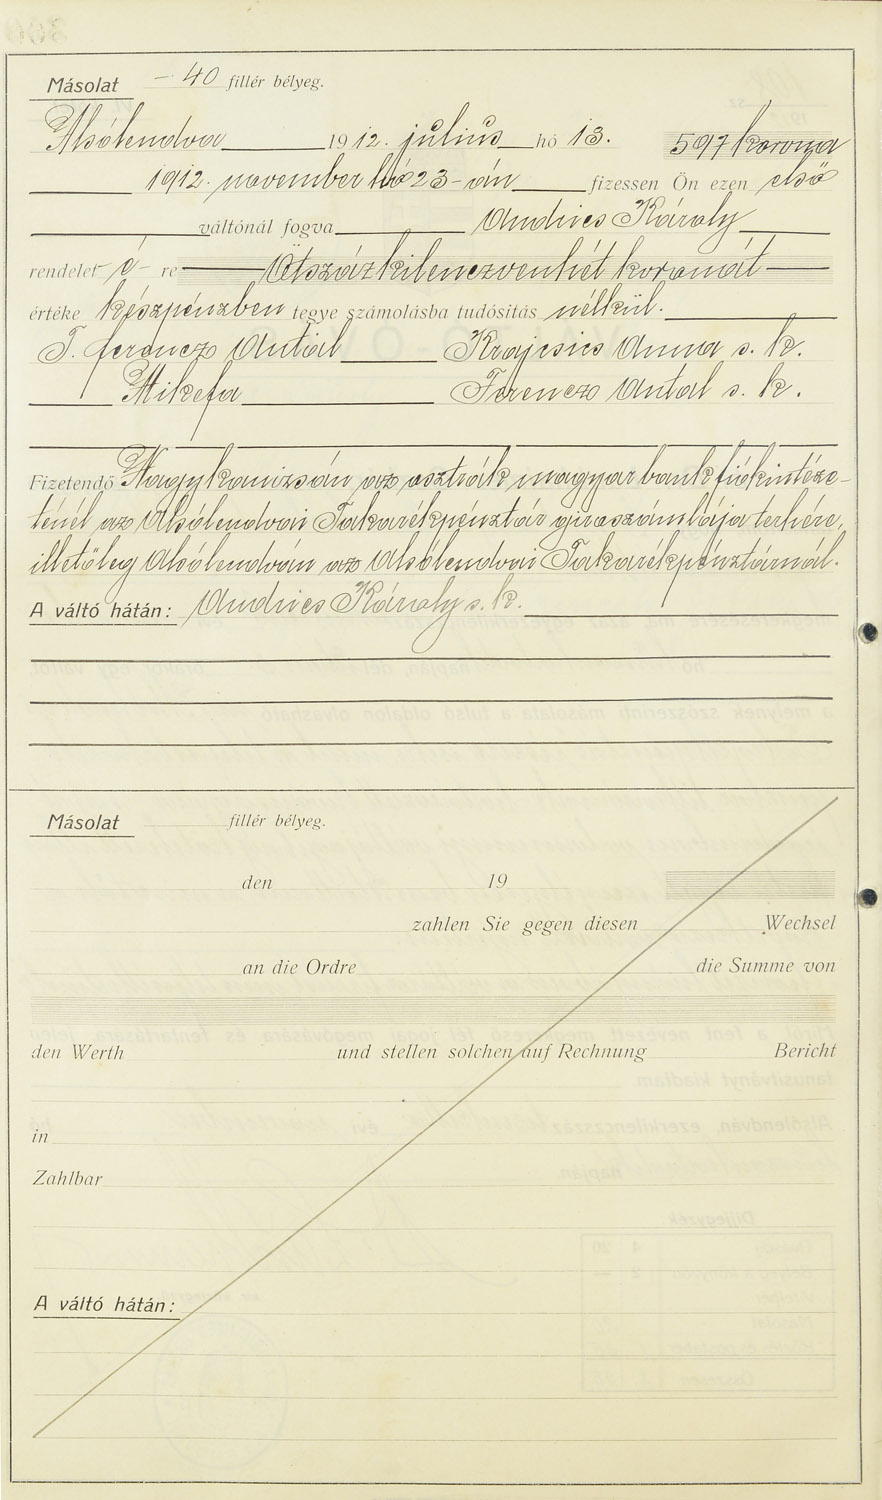 Másolat – 40 fillér bélyeg.
Alsólendva 1912. július hó 13. 597 korona
1912. november hó 23-án fizessen Ön ezen első
váltónál fogva Andrics Károly
rendelet é- re Ötszázkilenczvenhét koronát
értéke készpénzben tegye számolásba tudósitás nélkül.
T. Ferencz Antal Krajcsics Anna s. k.
Mikefa Ferencz Antal s. k.
Fizetendő Nagykanizsán az osztrák magyar bank fiókintéze-
ténél az Alsólendvai Takarékpénztár giroszámlája terhére,
illetőleg Alsólendván az Alsólendvai Takarékpénztárnál.
A váltó hátán: Andrics Károly s. k.
Másolat fillér bélyeg.
den 19
zahlen Sie gegen diesen Wechsel
an die Ordre die Summe von
den Werth und stellen solchen auf Rechnung Bericht
in
Zahlbar
A váltó hátán: